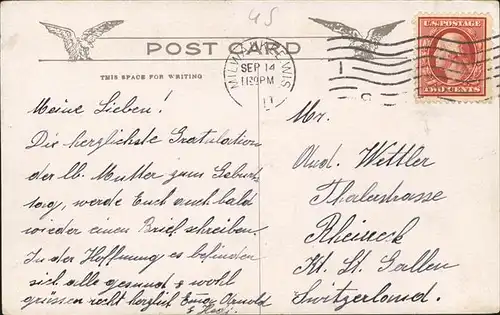 45
POST CARD
THIS SPACE FOR WRITING
MILWAUKEE, WIS.
SEP 14
11 30 PM
11
U.S. POSTAGE
TWO CENTS
Meine Lieben!
Die herzlichste Gratulation
der lb. Mutter zum Geburts
tag, werde Euch auch bald
wieder einen Brief schreiben.
In der Hoffnung es befinden
sich alle gesund & wohl
grüssen recht herzlich Arnold
&
Mr.
Wettler
Thalerstrasse
Rheineck
Kt. St. Gallen
Switzerland.